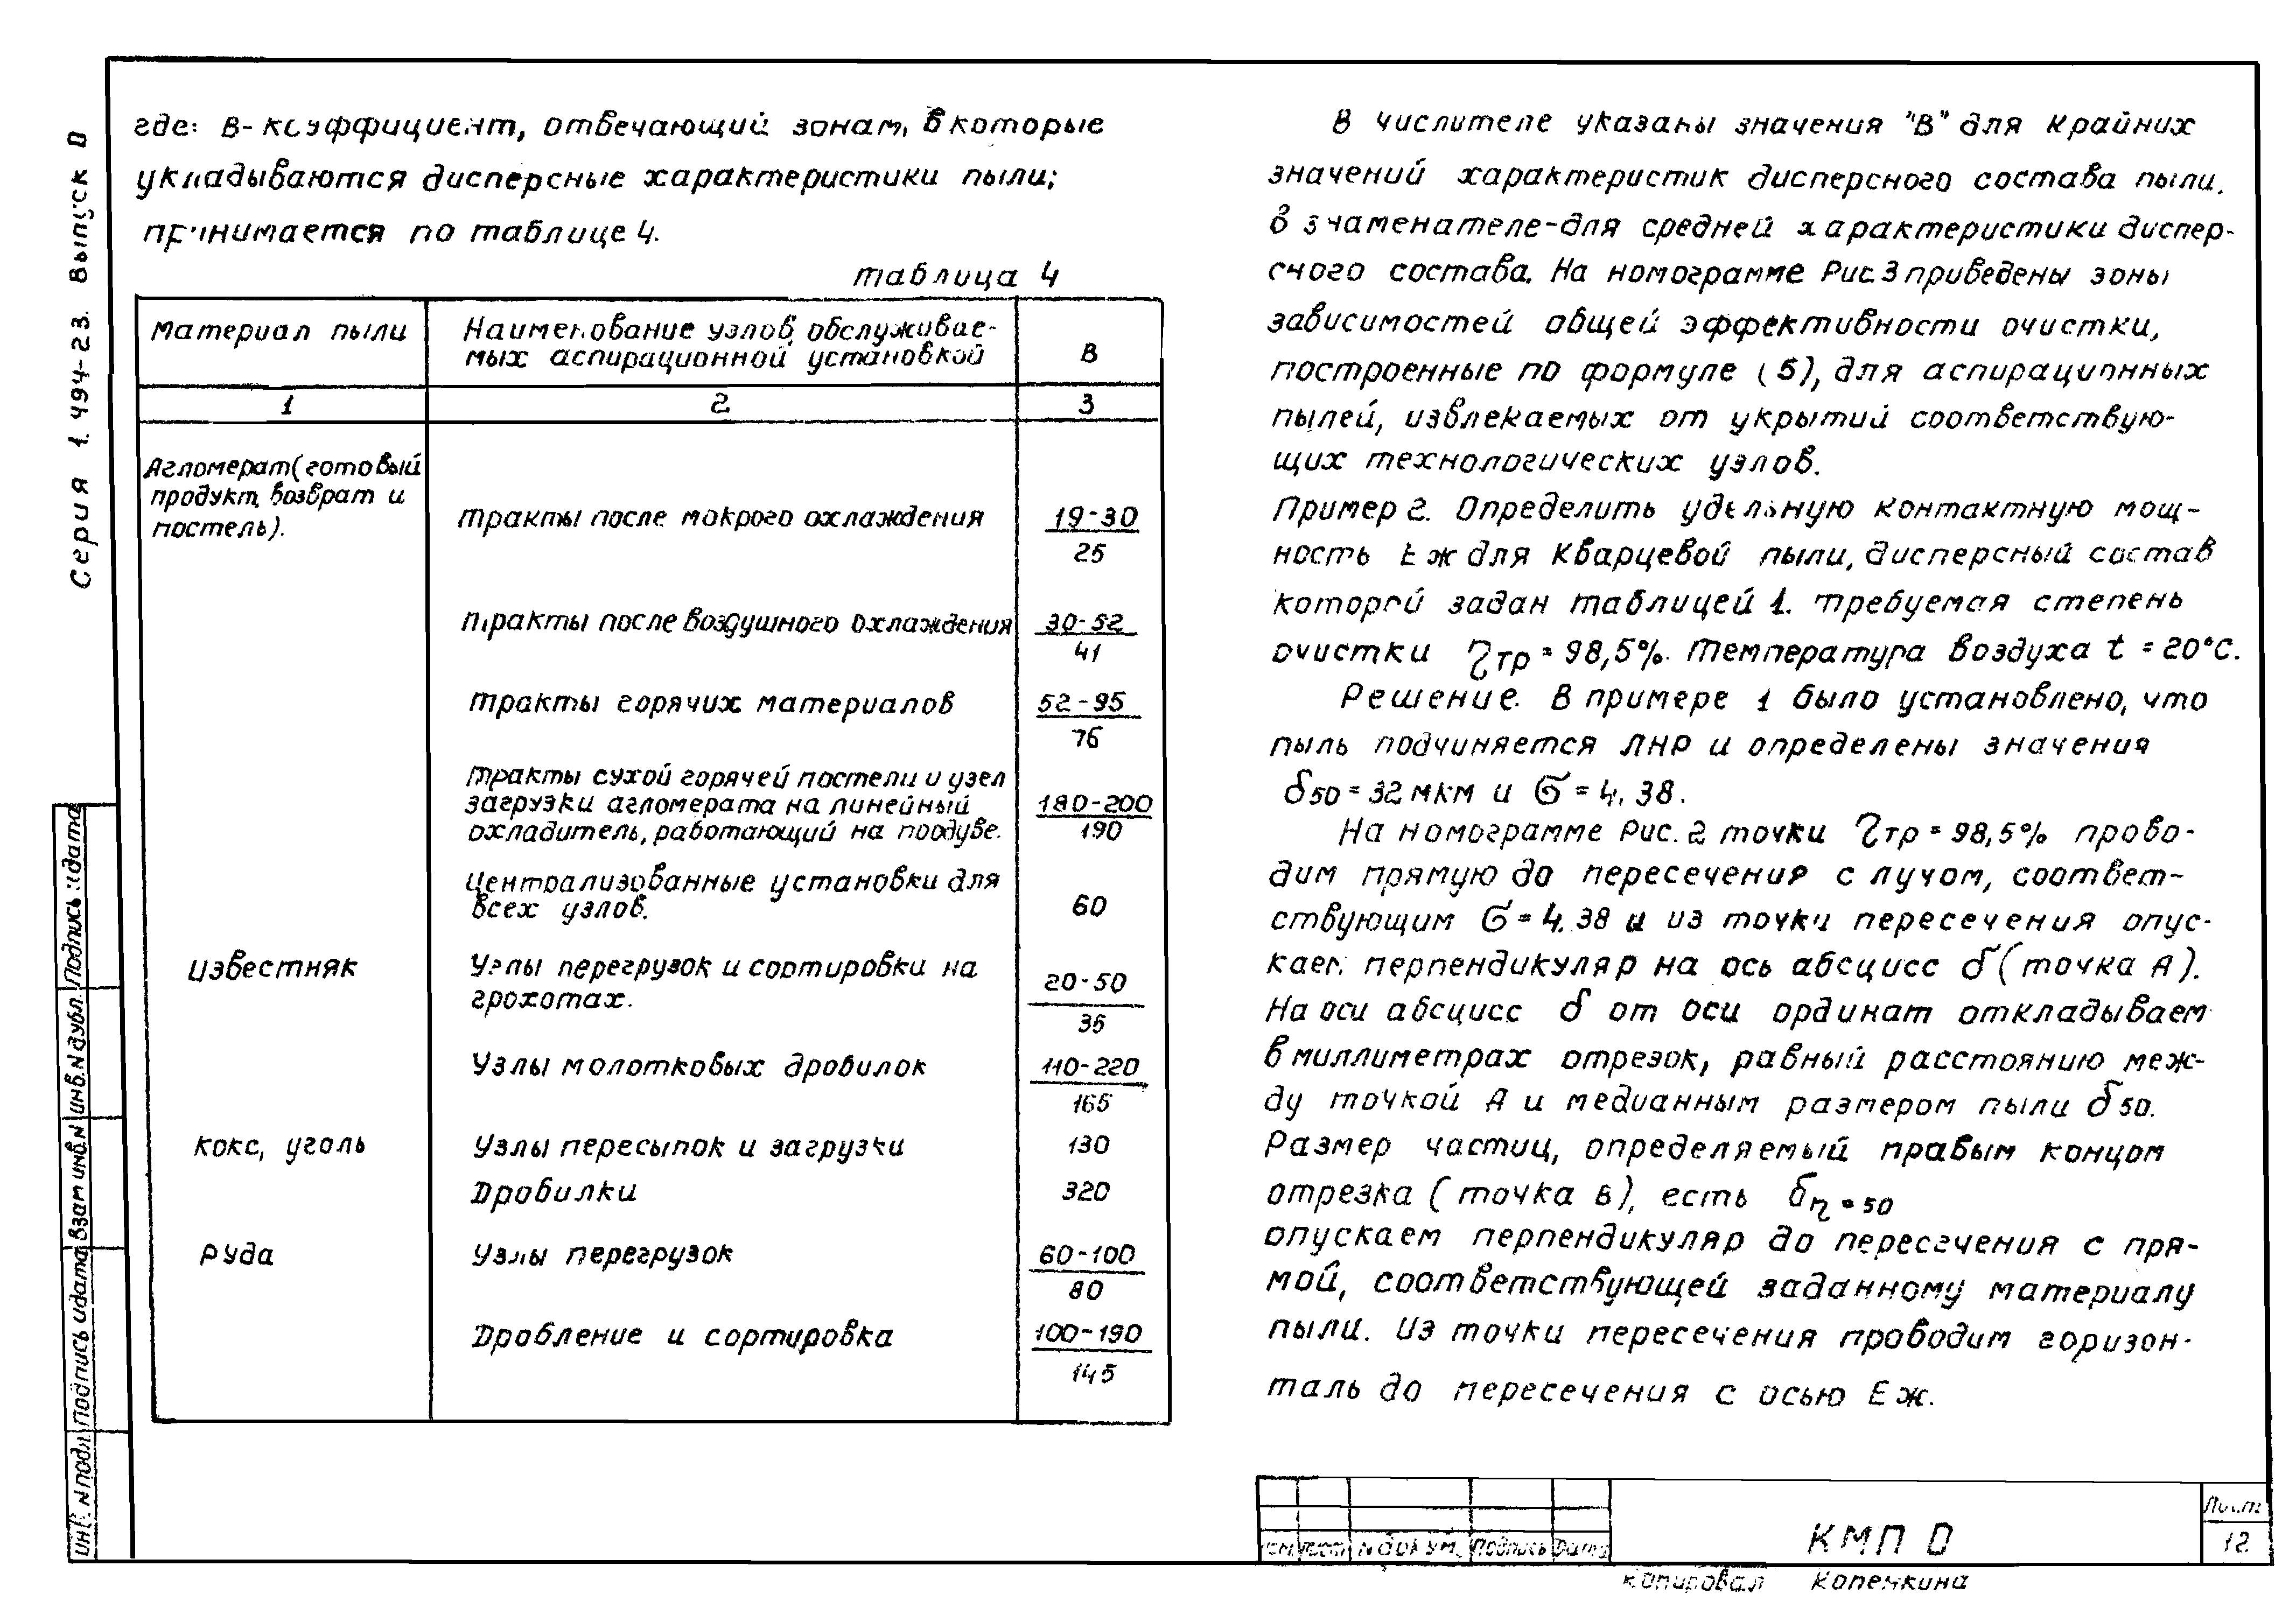 Серия 1.494-23. Выпуск 0
где: В- коэффициент, отвечающий зонам, в которые
укладываются дисперсные характеристики пыли;
принимается по таблице 4.
таблица 4
Материал пыли
Наименование узлов, обслуживае-
мых аспирационной установкой
В
1
2
3
Агломерат (готовый
продукт, возврат и
постель).
Тракты после мокрого охлаждения
19-30
25
Тракты после воздушного охлаждения
30-52
41
Тракты горячих материалов
52-95
76
Тракты сухой горячей постели и узел
загрузки агломерата на линейный
охладитель, работающий на поддуве.
180-200
190
Централизованные установки для
всех узлов.
60
Известняк
Узлы перегрузок и сортировки на
грохотах.
20-50
35
Узлы молотковых дробилок
110-220
165
Кокс, уголь
Узлы пересыпок и загрузки
130
Дробилки
320
Руда
Узлы перегрузок
60-100
80
Дробление и сортировка
100-190
145
В числителе указаны значения "В" для крайних
значений характеристик дисперсного состава пыли,
в знаменателе-для средней характеристики диспер-
сного состава. На номограмме Рис. 3 приведены зоны
зависимостей общей эффективности очистки,
построенные по формуле (5), для аспирационных
пылей, извлекаемых от укрытий соответствую-
щих технологических узлов.
Пример 2. Определить удельную контактную мощ-
ность Еж для кварцевой пыли, дисперсный состав
которой задан таблицей 1. Требуемая степень
очистки ηтр = 98,5%. Температура воздуха t = 20°С.
Решение. В примере 1 было установлено, что
пыль подчиняется ЛНР и определены значения
δ50 = 32 мкм и σ = 4.38.
На номограмме Рис. 2 точки ηтр = 98,5% прово-
дим прямую до пересечения с лучом, соответ-
ствующим σ = 4.38 и из точки пересечения опус-
каем перпендикуляр на ось абсцисс δ (точка А).
На оси абсцисс δ от оси ординат откладываем
в миллиметрах отрезок, равный расстоянию меж-
ду точкой А и медианным размером пыли δ50.
Размер частиц, определяемый правым концом
отрезка (точка в), есть δη = 50
опускаем перпендикуляр до пересечения с пря-
мой, соответствующей заданному материалу
пыли. Из точки пересечения проводим горизон-
таль до пересечения с осью Еж.
Инв. N подл. Подпись и дата Взам инв. N Инв. N дубл. Подпись и дата
Лист N докум. Подпись Дата
КМП 0
Лист
12
Копировал Копенкина